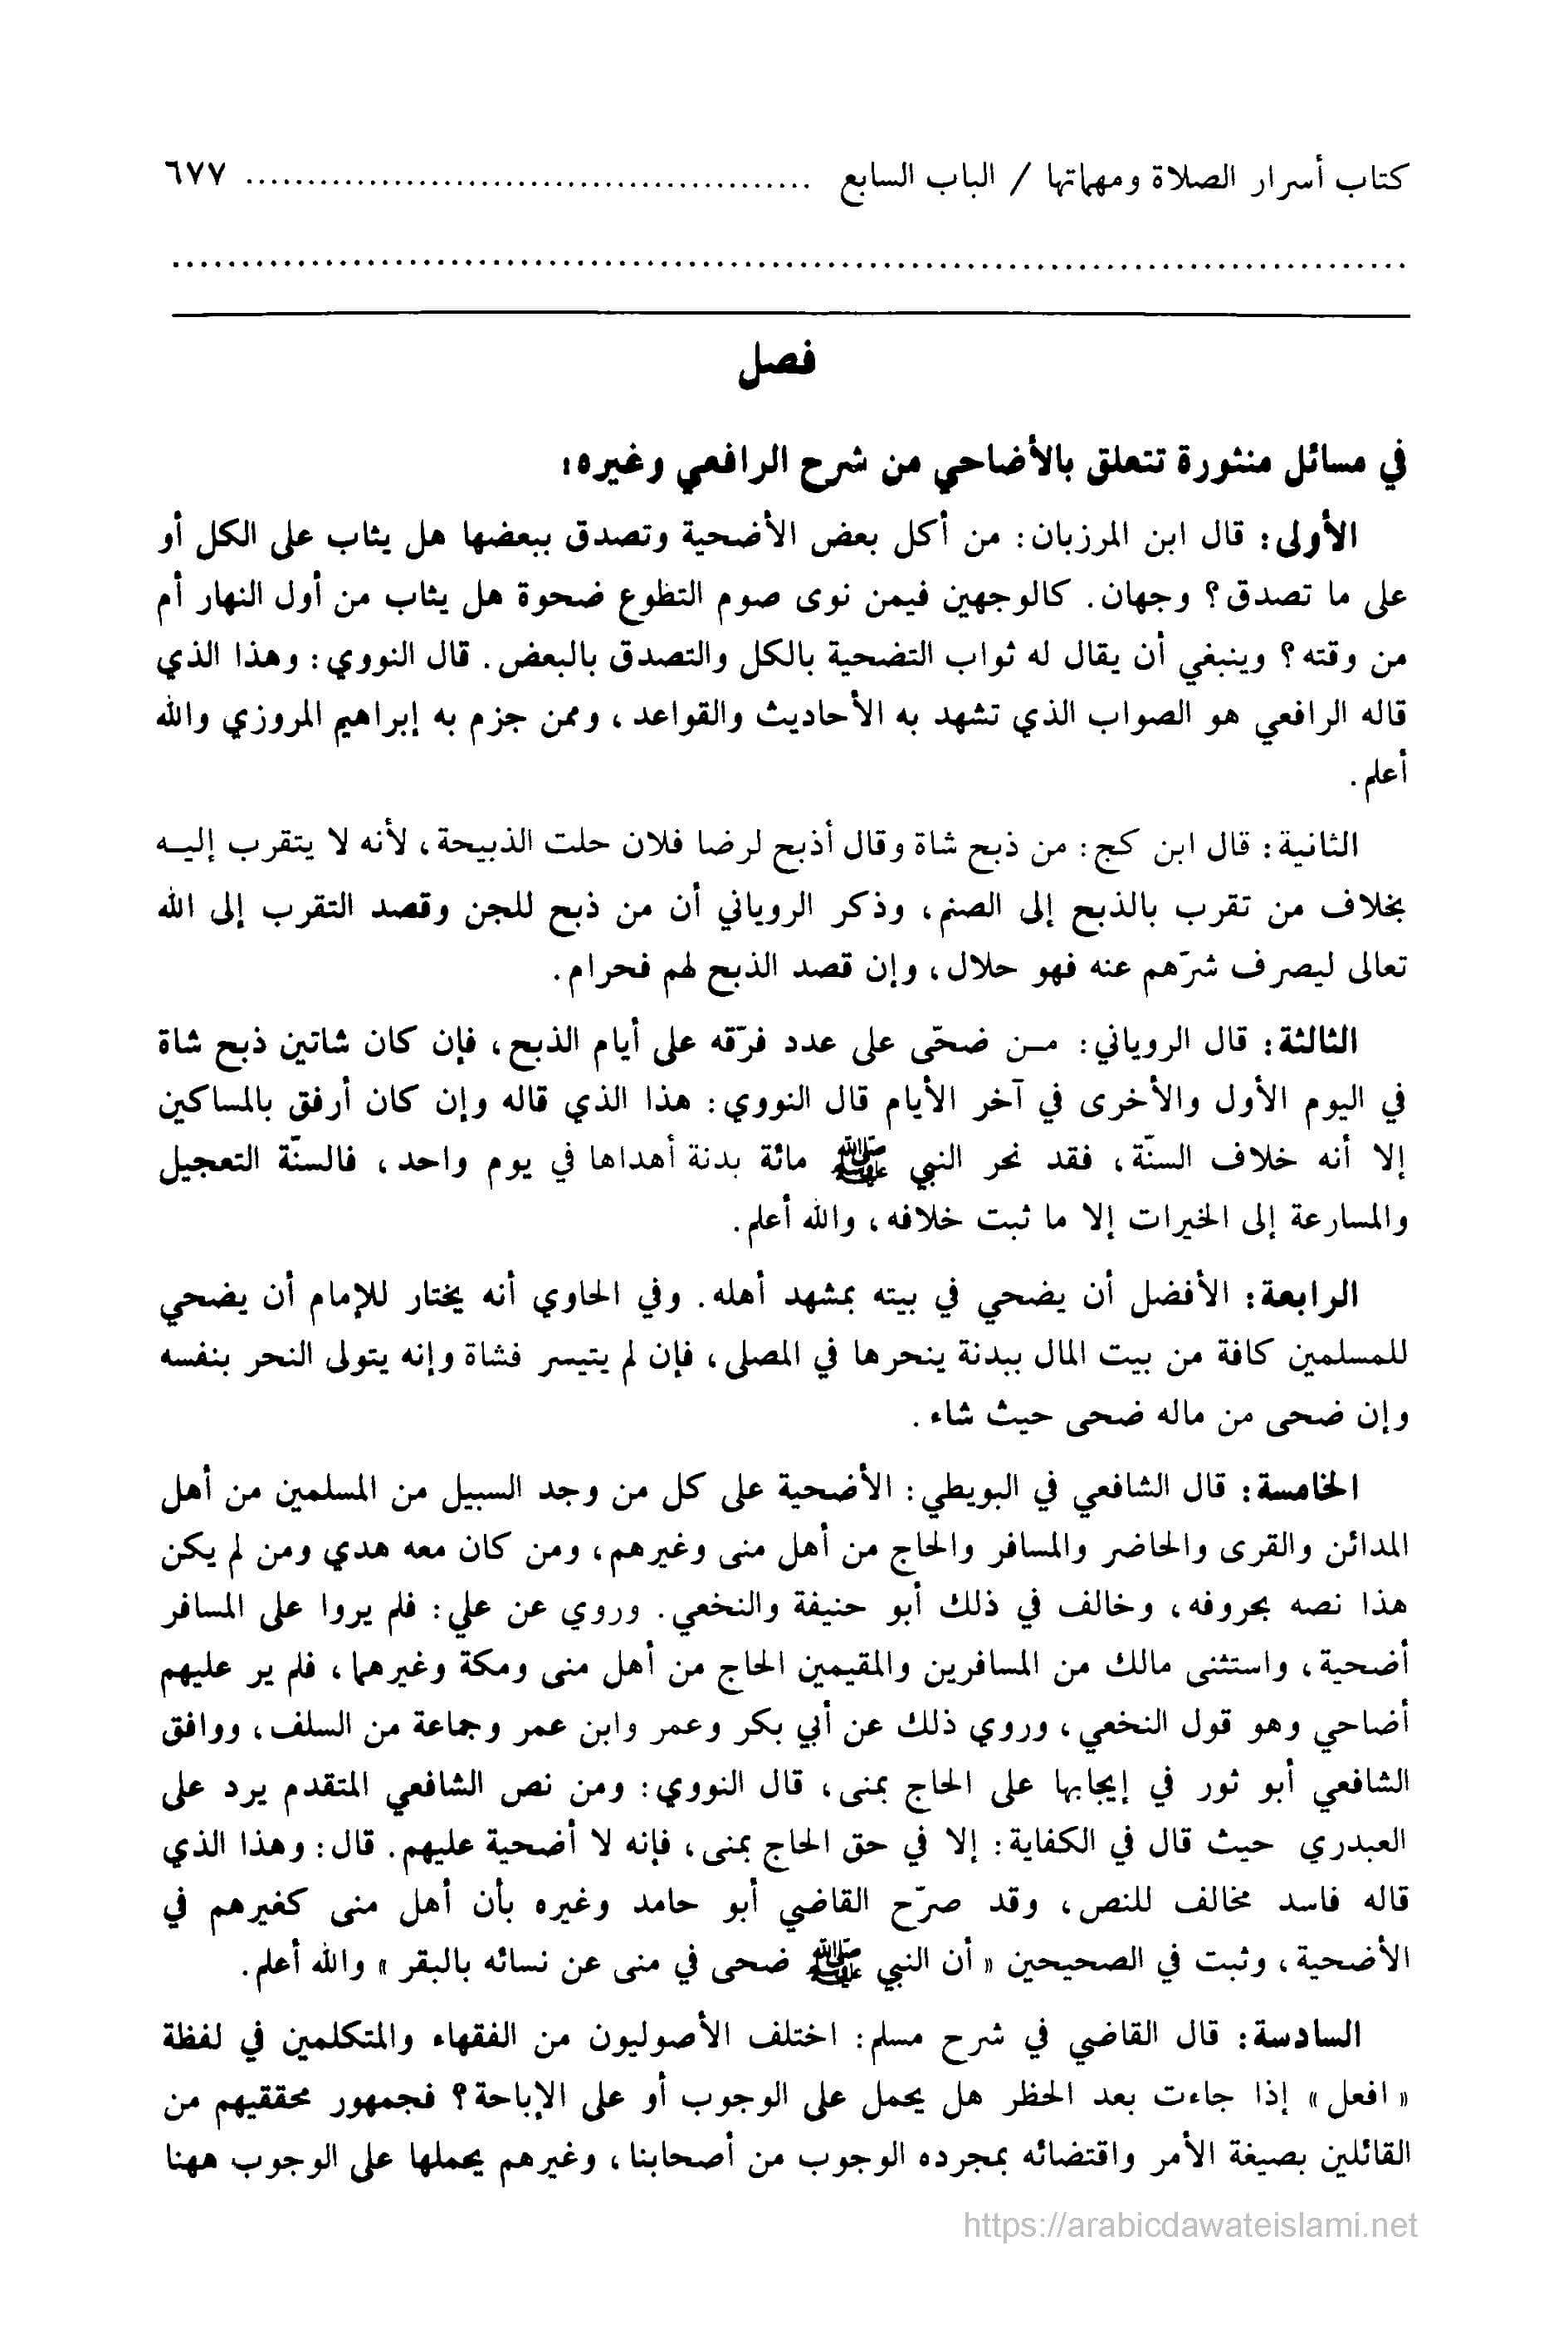 كتاب أسرار الصلاة ومهماتها / الباب السابع .............................................. ٦٧٧
..........................................................................................
فصل
في مسائل منثورة تتعلق بالأضاحي من شرح الرافعي وغيره:
الأولى: قال ابن المرزبان: من أكل بعض الأضحية وتصدق ببعضها هل يثاب على الكل أو
على ما تصدق؟ وجهان. كالوجهين فيمن نوى صوم التطوع ضحوة هل يثاب من أول النهار أم
من وقته؟ وينبغي أن يقال له ثواب التضحية بالكل والتصدق بالبعض. قال النووي: وهذا الذي
قاله الرافعي هو الصواب الذي تشهد به الأحاديث والقواعد، وممن جزم به إبراهيم المروزي والله
أعلم.
الثانية: قال ابن كج: من ذبح شاة وقال أذبح لرضا فلان حلت الذبيحة، لأنه لا يتقرب إليه
بخلاف من تقرب بالذبح إلى الصنم، وذكر الروياني أن من ذبح للجن وقصد التقرب إلى الله
تعالى ليصرف شرّهم عنه فهو حلال، وإن قصد الذبح لهم فحرام.
الثالثة: قال الروياني: من ضحّى على عدد فرّقه على أيام الذبح، فإن كان شاتين ذبح شاة
في اليوم الأول والأخرى في آخر الأيام قال النووي: هذا الذي قاله وإن كان أرفق بالمساكين
إلا أنه خلاف السنّة، فقد نحر النبي ﷺ مائة بدنة أهداها في يوم واحد، فالسنّة التعجيل
والمسارعة إلى الخيرات إلا ما ثبت خلافه، والله أعلم.
الرابعة: الأفضل أن يضحي في بيته بمشهد أهله. وفي الحاوي أنه يختار للإمام أن يضحي
للمسلمين كافة من بيت المال ببدنة ينحرها في المصلى، فإن لم يتيسر فشاة وإنه يتولى النحر بنفسه
وإن ضحى من ماله ضحى حيث شاء.
الخامسة: قال الشافعي في البويطي: الأضحية على كل من وجد السبيل من المسلمين من أهل
المدائن والقرى والحاضر والمسافر والحاج من أهل منى وغيرهم، ومن كان معه هدي ومن لم يكن
هذا نصه بحروفه، وخالف في ذلك أبو حنيفة والنخعي. وروي عن علي: فلم يروا على المسافر
أضحية، واستثنى مالك من المسافرين والمقيمين الحاج من أهل منى ومكة وغيرهما، فلم ير عليهم
أضاحي وهو قول النخعي، وروي ذلك عن أبي بكر وعمر وابن عمر وجماعة من السلف، ووافق
الشافعي أبو ثور في إيجابها على الحاج بمنى، قال النووي: ومن نص الشافعي المتقدم يرد على
العبدري حيث قال في الكفاية: إلا في حق الحاج بمنى، فإنه لا أضحية عليهم. قال: وهذا الذي
قاله فاسد مخالف للنص، وقد صرّح القاضي أبو حامد وغيره بأن أهل منى كغيرهم في
الأضحية، وثبت في الصحيحين « أن النبي ﷺ ضحى في منى عن نسائه بالبقر » والله أعلم.
السادسة: قال القاضي في شرح مسلم: اختلف الأصوليون من الفقهاء والمتكلمين في لفظة
« افعل » إذا جاءت بعد الحظر هل يحمل على الوجوب أو على الإباحة؟ فجمهور محققيهم من
القائلين بصيغة الأمر واقتضائه بمجرده الوجوب من أصحابنا، وغيرهم يحملها على الوجوب ههنا
https://arabicdawateislami.net